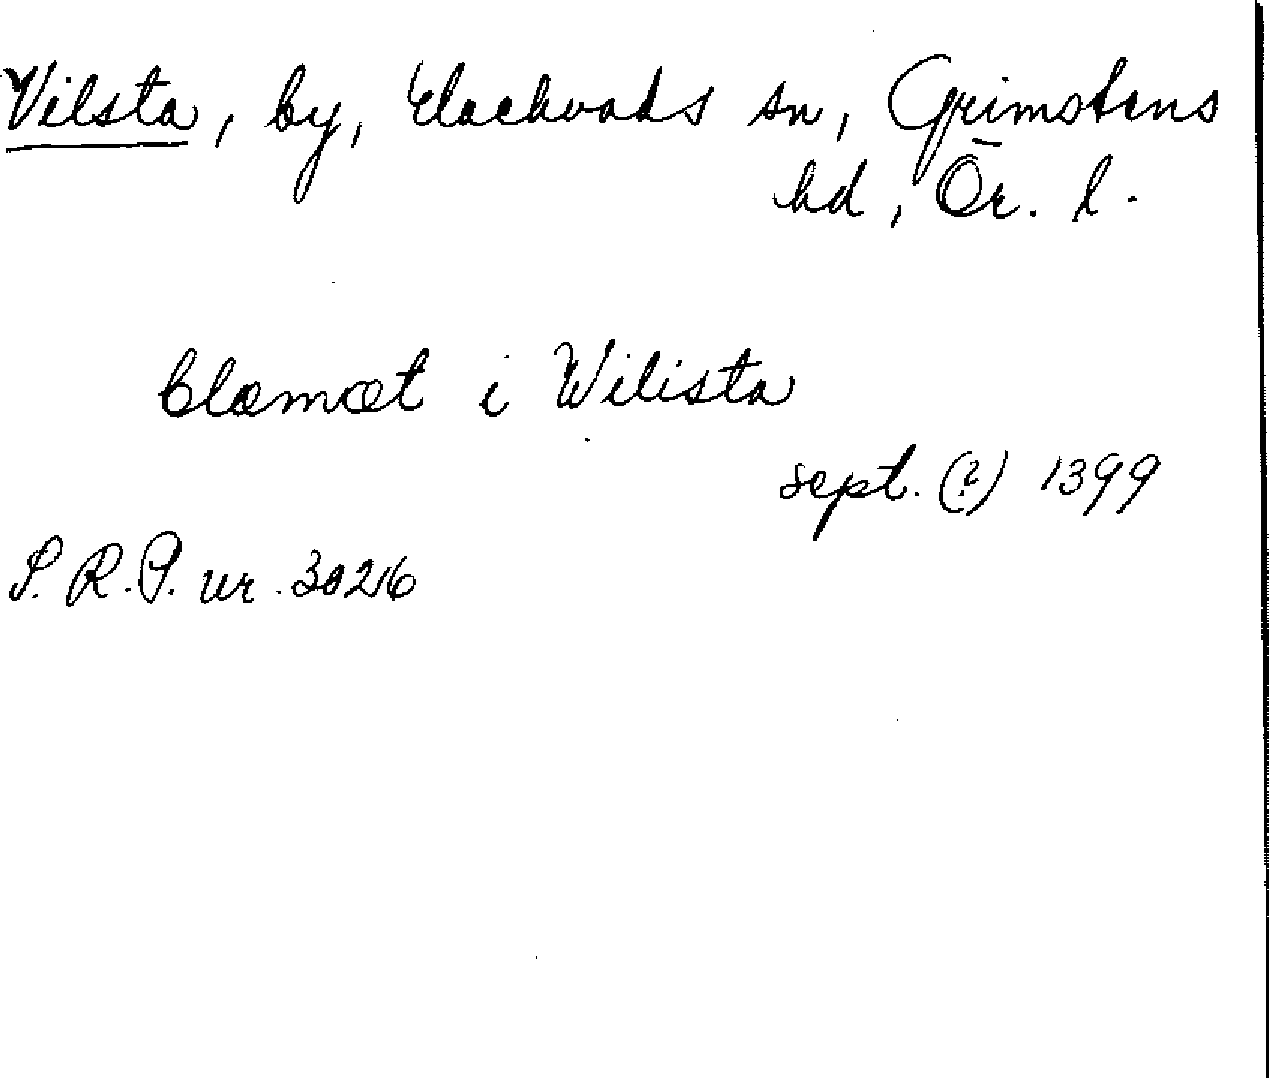 Vilsta, by, Elackvads sn, Grimstens
hd, Ör. l.
Clæmæt i Wilista
sept. (?) 1399
S.R.P. nr. 3026